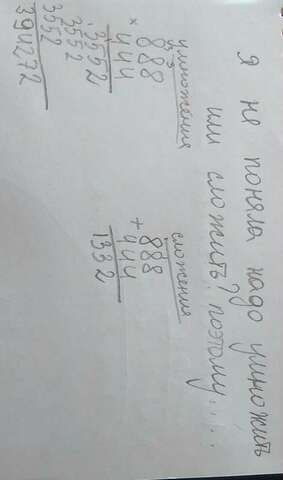 я не поняла надо умножить
или сложить? поэтому.....
умножения
×
888
444
3552
3552
3552
394272
сложения
+
888
444
1332